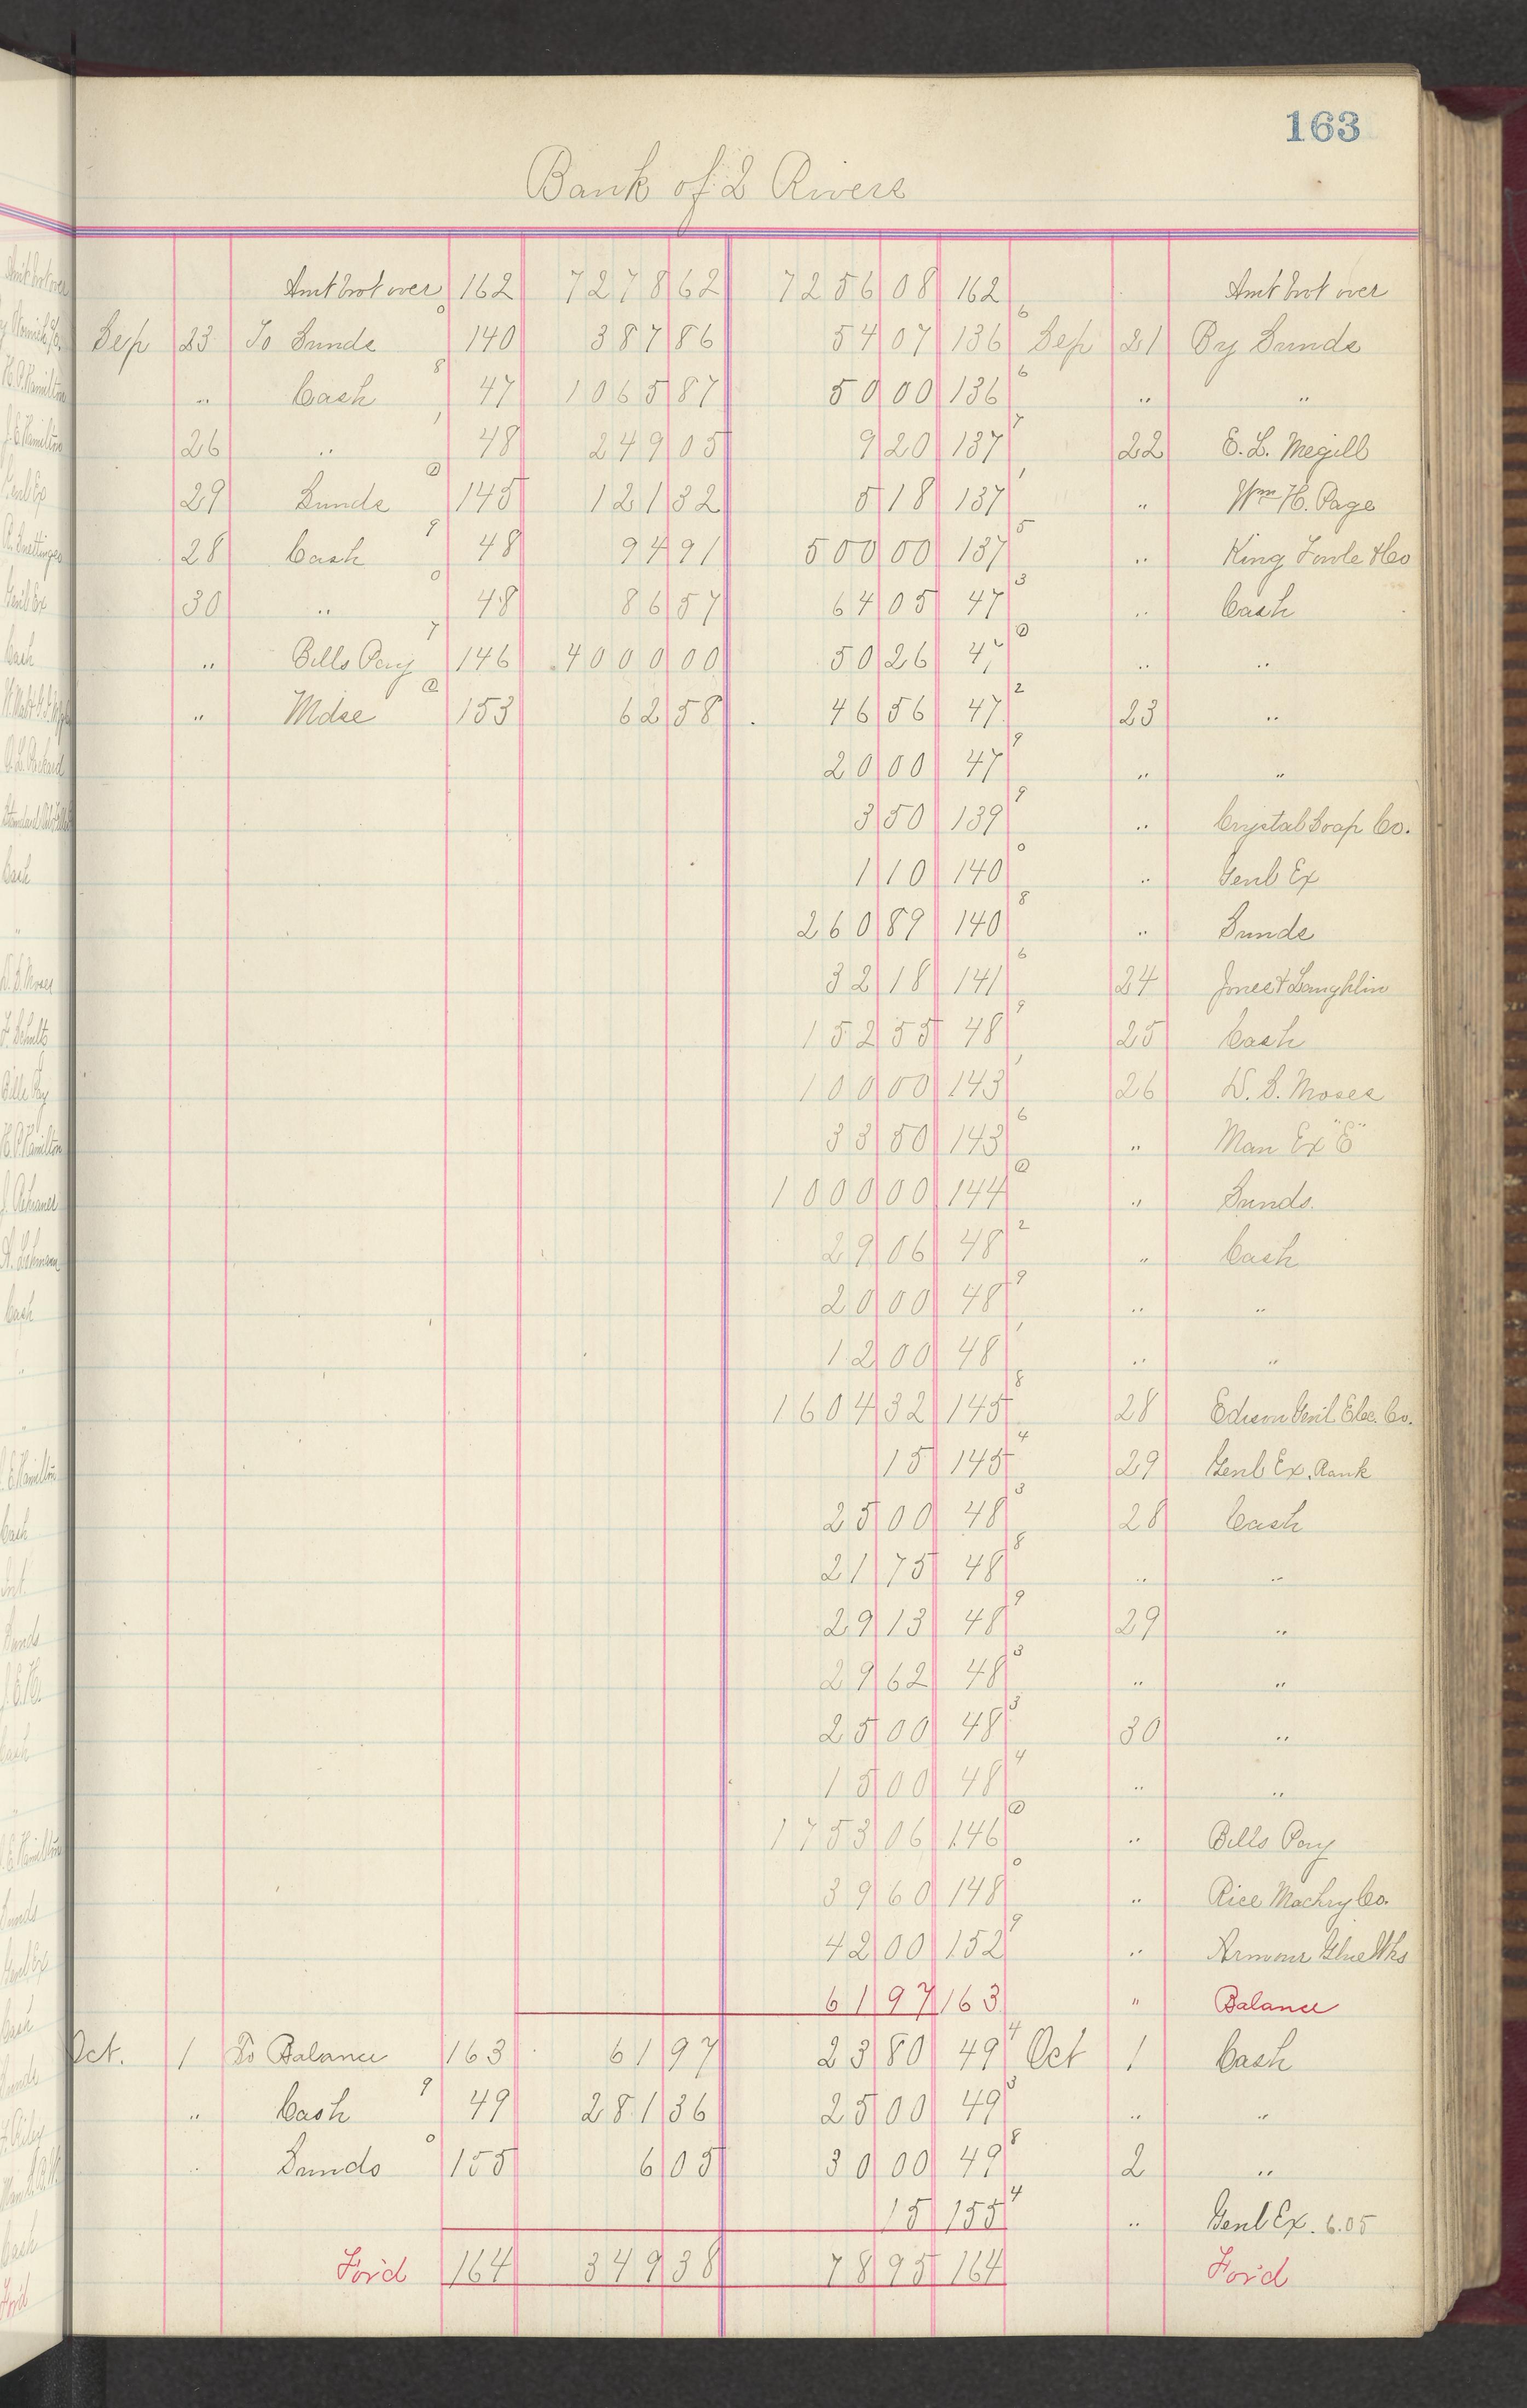 163
Bank of 2 Rivers
Amt brot over 162 7278 62 7256 08 162 Amt brot over
Sep 23 To Sunds 0 140 387 86 54 07 136 6 Sep 21 By Sunds
" Cash 8 47 1065 87 50 00 136 6 " "
26 " 1 48 249 05 9 20 137 7 22 E. L. Megill
29 Sunds @ 145 121 32 5 18 137 1 " Wm H. Page
28 Cash 9 48 94 91 500 00 137 5 " King Fowle & Co
30 " 0 48 86 57 64 05 47 3 " Cash
" Bills Pay 7 146 4000 00 50 26 47 @ " "
" Mdse @ 153 62 58 46 56 47 2 23 "
20 00 47 9 " "
3 50 139 9 " Crystal Soap Co.
1 10 140 0 " Genl Ex
260 89 140 8 " Sunds
32 18 141 6 24 Jones & Laughlin
152 55 48 9 25 Cash
100 00 143 1 26 W. S. Moses
33 50 143 6 " Man Ex "E"
1000 00 144 @ " Sunds.
29 06 48 2 " Cash
20 00 48 9 " "
12 00 48 1 " "
1604 32 145 8 28 Edison Genl Elec. Co.
15 145 4 29 Genl Ex. Bank
25 00 48 3 28 Cash
21 75 48 8 " "
29 13 48 9 29 "
29 62 48 3 " "
25 00 48 3 30 "
15 00 48 4 " "
1753 06 146 @ " Bills Pay
39 60 148 0 " Rice Machry Co.
42 00 152 9 " Armour Glue Wks
61 97 163 " Balance
Oct. 1 To Balance 163 61 97 23 80 49 4 Oct 1 Cash
" Cash 9 49 281 36 25 00 49 3 " "
" Sunds 0 155 6 05 30 00 49 8 2 "
15 155 4 " Genl Ex. 6.05
For'd 164 349 38 78 95 164 For'd